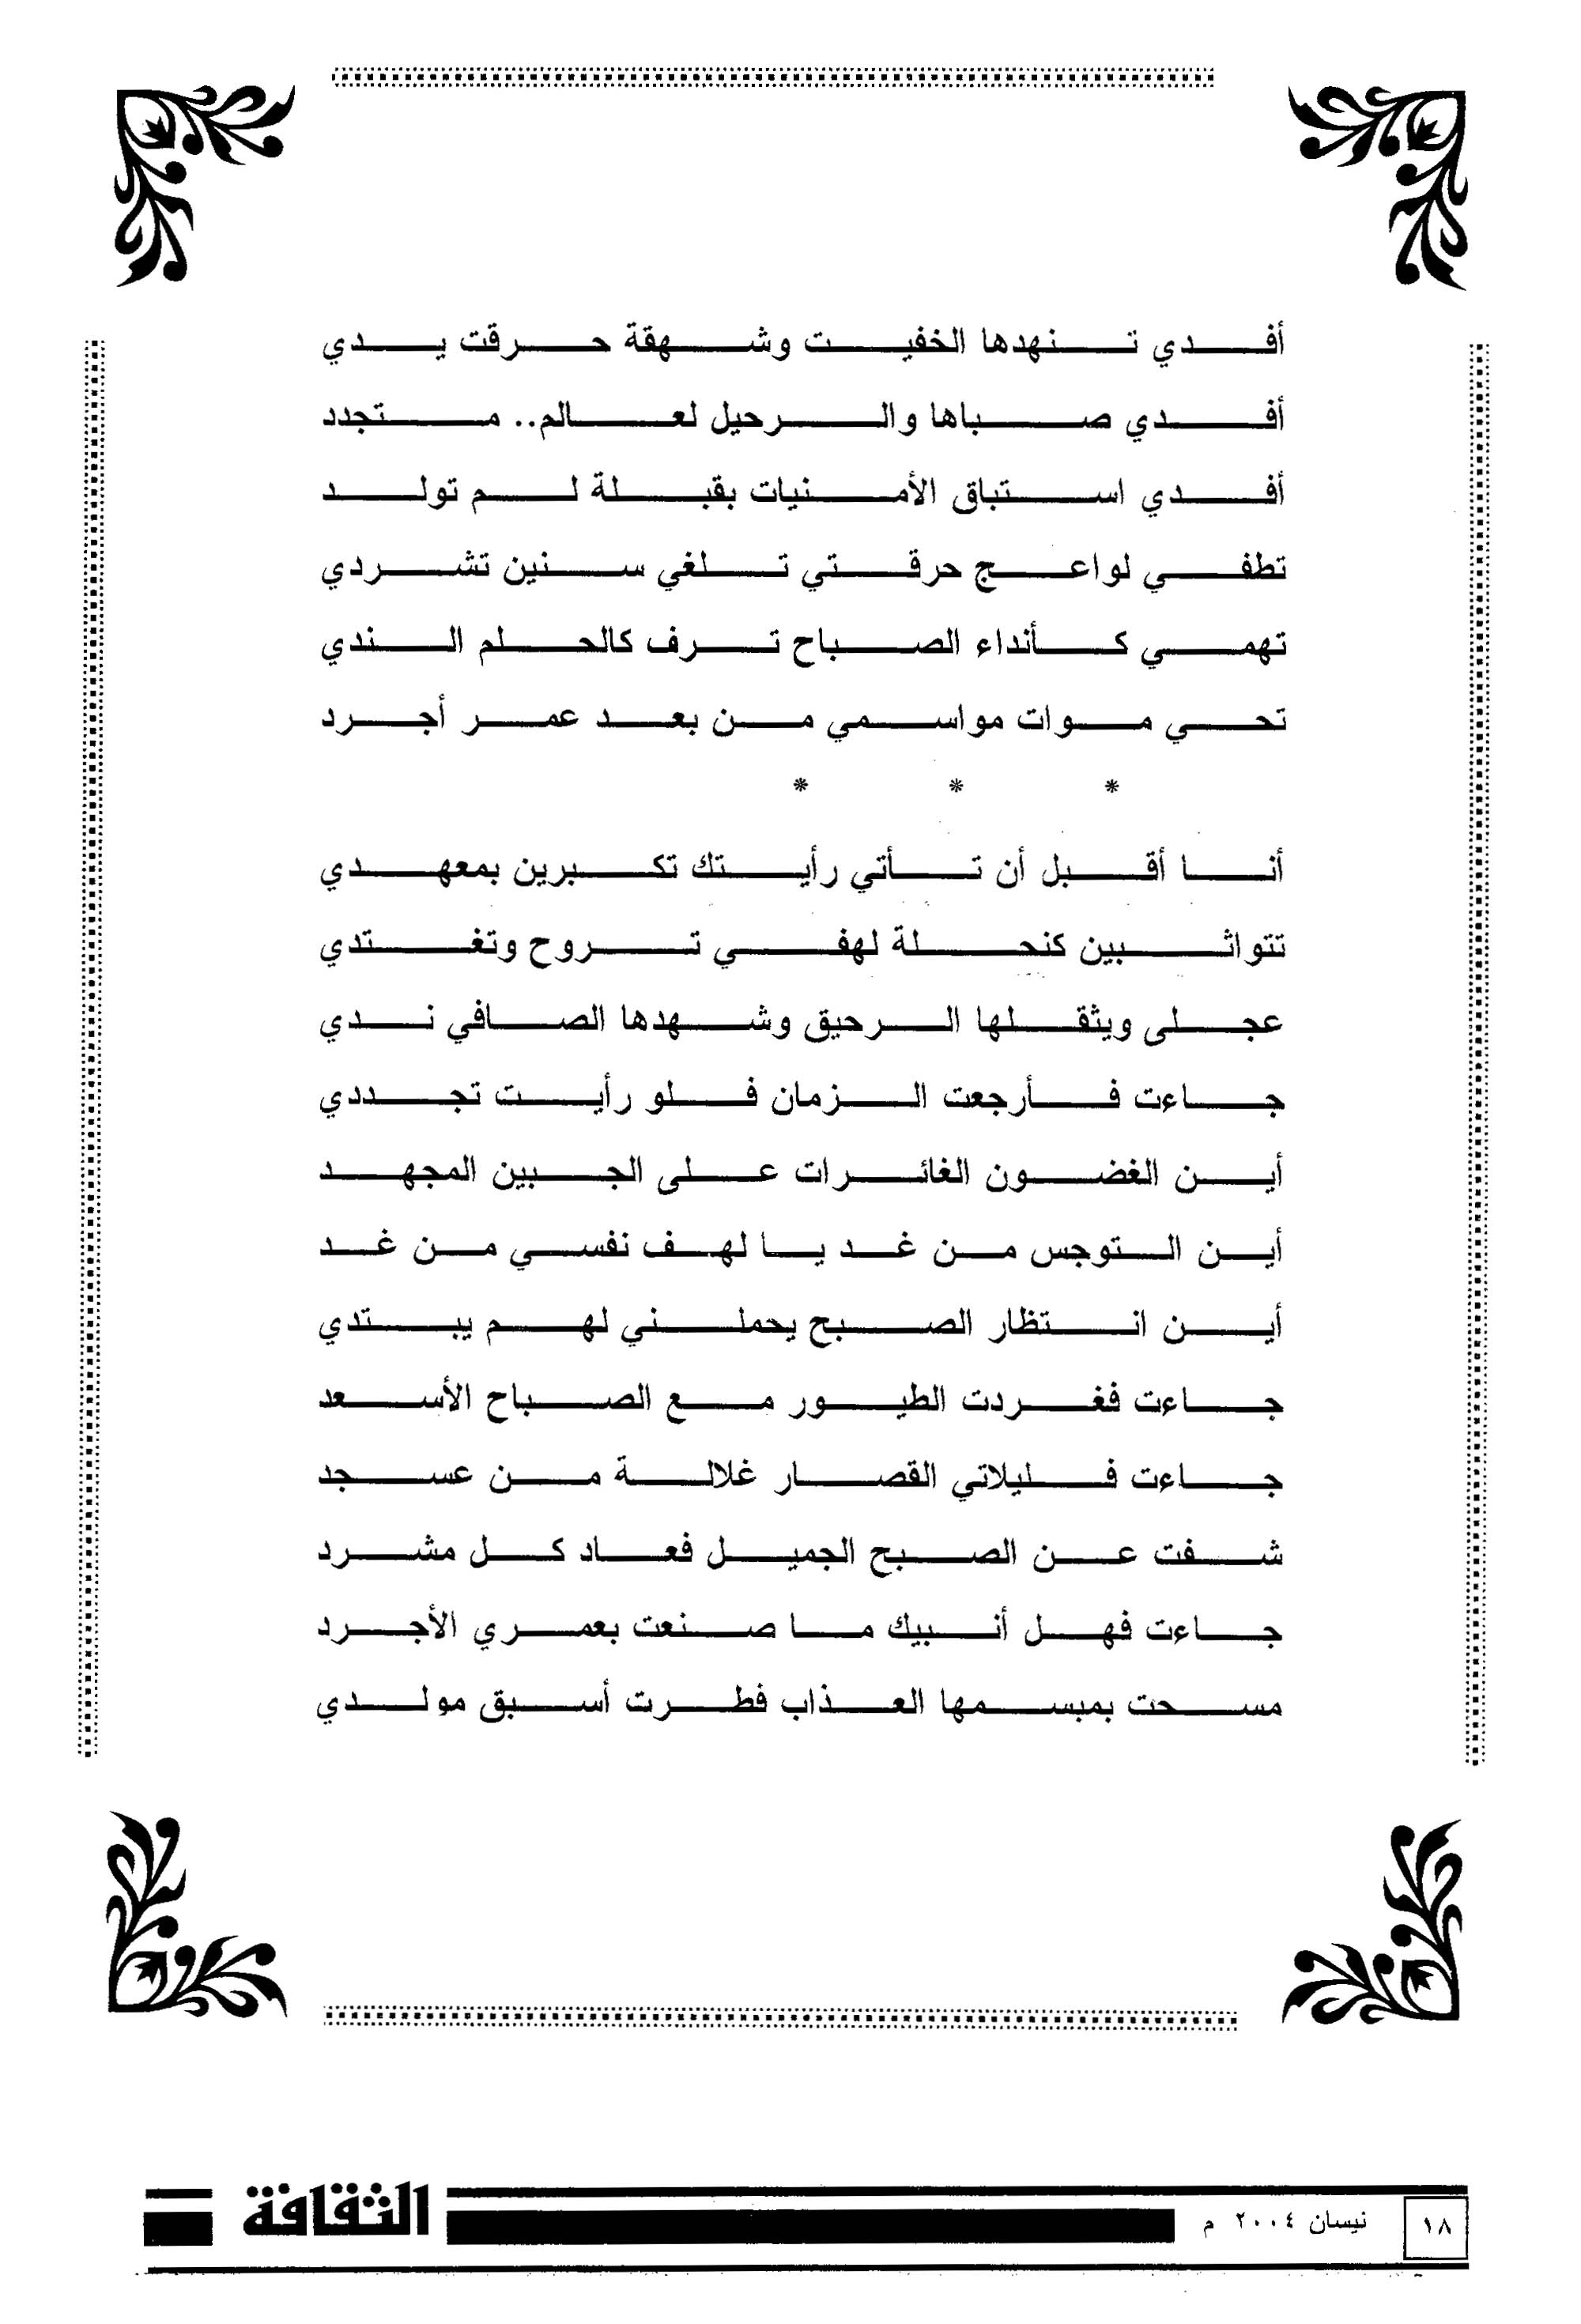 أفدي تنهدها الخفيت وشهقة حرقت يدي
أفدي صباها والرحيل لعالم.. متجدد
أفدي استباق الأمنيات بقبلة لم تولد
تطفي لواعج حرقتي تلغي سنين تشردي
تهمي كأنداء الصباح ترف كالحلم الندي
تحي موات مواسمي من بعد عمر أجرد
* * *
أنا أقبل أن تأتي رأيتك تكبرين بمعهدي
تتواثبين كنحلة لهفي تروح وتغتدي
عجلى ويثقلها الرحيق وشهدها الصافي ندي
جاءت فأرجعت الزمان فلو رأيت تجددي
أين الغضون الغائرات على الجبين المجهد
أين التوجس من غد يا لهف نفسي من غد
أين انتظار الصبح يحملني لهم يبتدي
جاءت فغردت الطيور مع الصباح الأسعد
جاءت فليلاتي القصار غلالة من عسجد
شفت عن الصبح الجميل فعاد كل مشرد
جاءت فهل أنبيك ما صنعت بعمري الأجرد
مسحت بمبسمها العذاب فطرت أسبق مولدي
١٨ نيسان ٢٠٠٤ م الثقافة